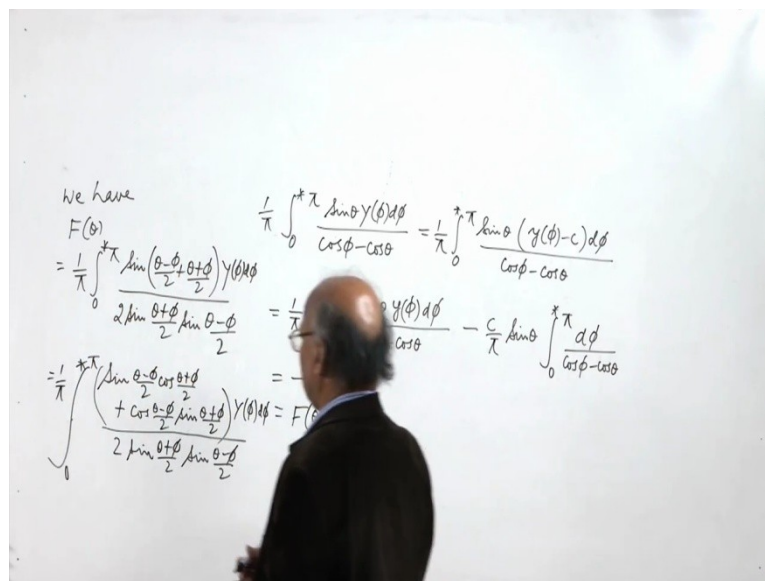 we have
F(θ)
= 1/π ∫₀*^π sin((θ-φ)/2 + (θ+φ)/2) Y(φ)dφ / (2 sin (θ+φ)/2 sin (θ-φ)/2)
= 1/π ∫₀*^π (sin (θ-φ)/2 cos (θ+φ)/2 + cos (θ-φ)/2 sin (θ+φ)/2) Y(φ)dφ / (2 sin (θ+φ)/2 sin (θ-φ)/2)
1/π ∫₀*^π sinθ Y(φ)dφ / (cosφ-cosθ) = 1/π ∫₀*^π sinθ (y(φ)-c)dφ / (cosφ-cosθ)
= 1/π y(φ)dφ / cosθ - c/π sinθ ∫₀*^π dφ / (cosφ-cosθ)
=
= F(